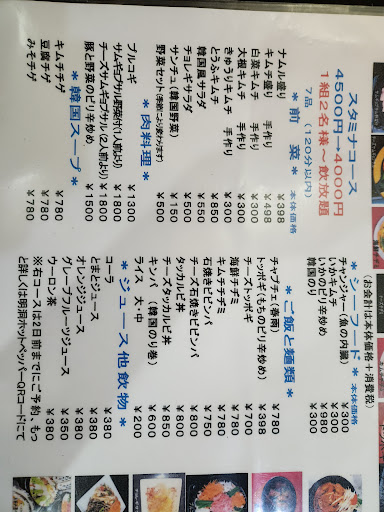 スタミナコース
4500円→4000円
1組2名様〜飲放題
7品(120分以内)
*前菜* 本体価格
ナムル盛り ￥398
キムチ盛り 手作り ￥498
白菜キムチ 手作り ￥300
大根キムチ 手作り ￥300
きゅうりキムチ 手作り ￥300
とうふキムチ ￥500
韓国風サラダ ￥500
チョレギサラダ ￥550
サンチュ(韓国野菜) ￥150
野菜セット(季節により変わります) ￥600
*肉料理*
プルコギ ￥1300
サムギョプサル野菜付(1人前より) ￥1800
チーズサムギョプサル(2人前より) ￥1800
豚と野菜のピリ辛炒め ￥1500
*韓国スープ*
キムチチゲ ￥780
豆腐チゲ ￥780
みそチゲ ￥780
(お会計は本体価格+消費税)
*シーフード* 本体価格
チャンジャー(魚の内臓) ￥300
いかキムチ ￥300
いかのピリ辛炒め ￥980
韓国のり ￥300
*ご飯と麺類*
チャプチェ(春雨) ￥780
トッポギ(もちのピリ辛炒め) ￥398
チーズトッポギ ￥700
海鮮チヂミ ￥780
キムチチヂミ ￥780
石焼きビビンバ ￥750
チーズ石焼きビビンバ ￥850
タッカルビ丼 ￥800
チーズタッカルビ丼 ￥800
キンパ (韓国のり巻) ￥600
ライス 大・中 ￥200
*ジュース他飲物*
コーラ ￥380
とまとジュース ￥380
オレンジジュース ￥380
グレープフルーツジュース ￥380
ウーロン茶 ￥380
※右コースは2日前までにご予約、もっ
と詳しくは明洞ホットペッパーQRコードにて